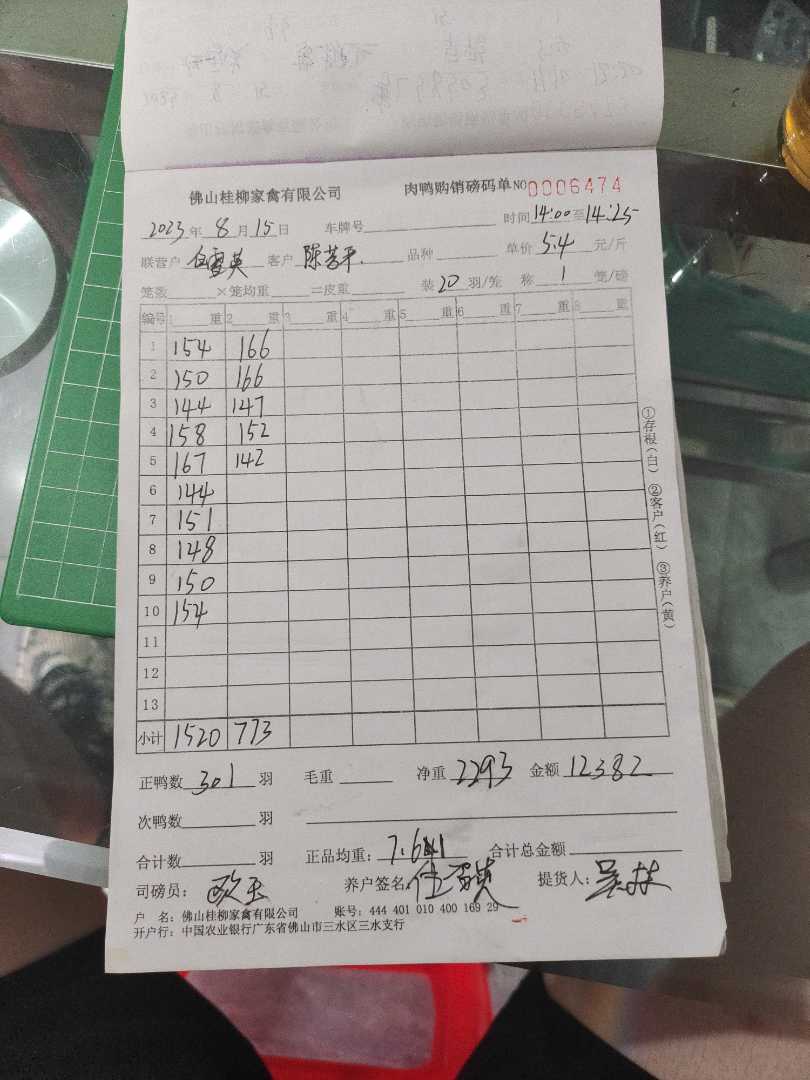 佛山桂柳家禽有限公司 肉鸭购销磅码单 NO 0006474
2023年8月15日 车牌号 时间14:00至14:25
联营户 客户 品种 单价5.4元/斤
笼数×笼均重=皮重 装20羽/笼 称1笼/磅
编号 1重 2重 3重 4重 5重 6重 7重 8重
1 154 166
2 150 166
3 144 147
4 158 152
5 167 142
6 144
7 151
8 148
9 150
10 154
11
12
13
小计 1520 773
正鸭数301羽 毛重 净重2293 金额12382
次鸭数 羽
合计数 羽 正品均重: 合计总金额
司磅员: 养户签名 提货人:
户 名: 佛山桂柳家禽有限公司 账号: 444 401 010 400 169 29
开户行: 中国农业银行广东省佛山市三水区三水支行
①存根(白) ②客户(红) ③养户(黄)